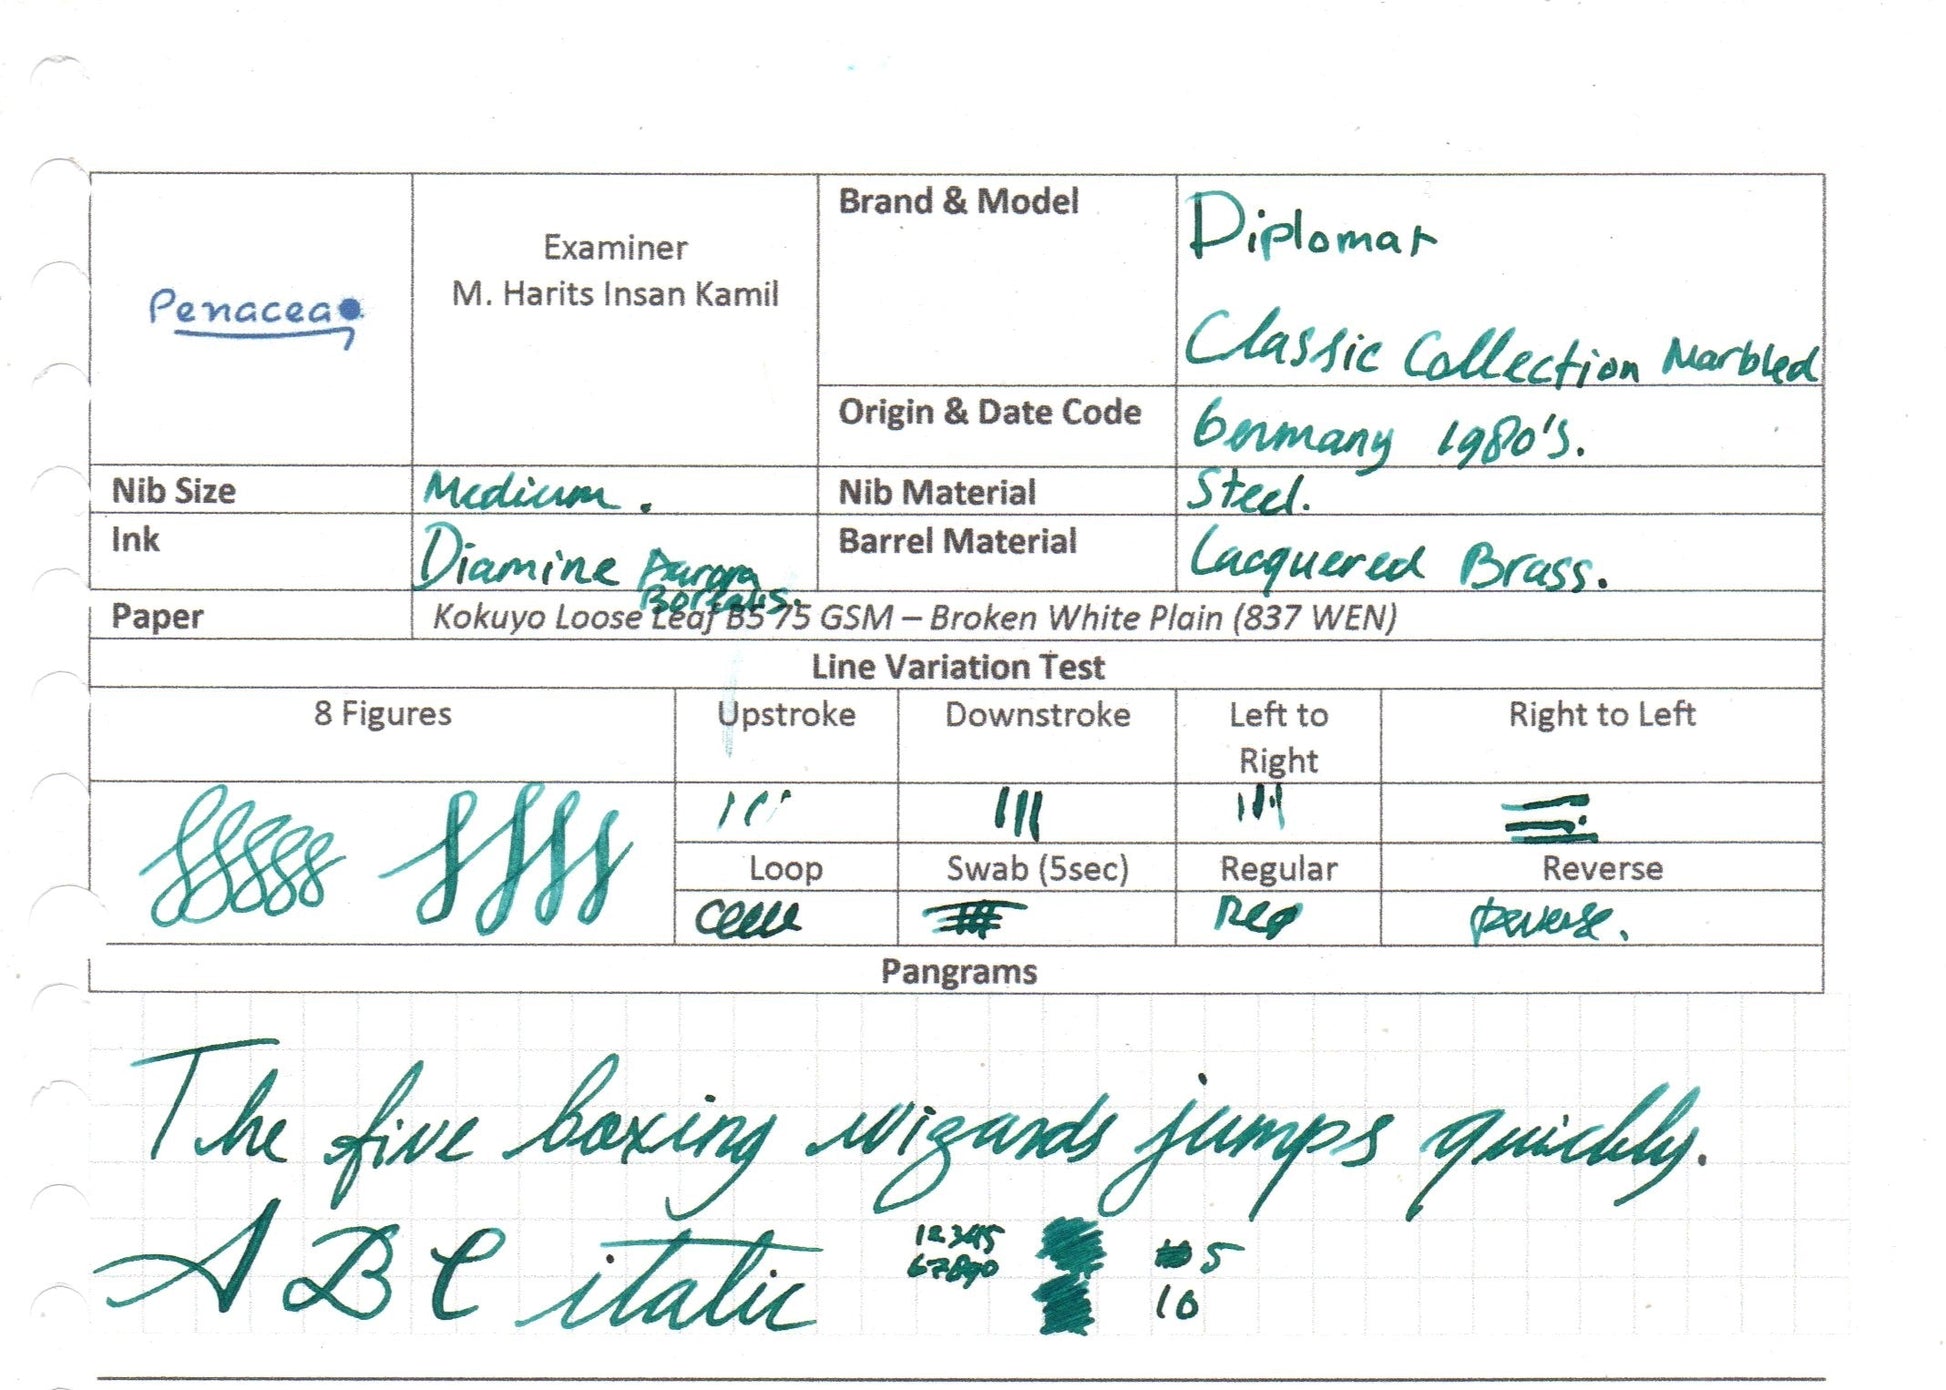 Penacea
Examiner
M. Harits Insan Kamil
Brand & Model
Diplomat
Classic Collection Marbled
Origin & Date Code
Germany 1980's.
Nib Size
Medium.
Nib Material
Steel.
Ink
Diamine Aurora
Borealis.
Barrel Material
Lacquered Brass.
Paper
Kokuyo Loose Leaf B5 75 GSM – Broken White Plain (837 WEN)
Line Variation Test
8 Figures
Upstroke
Downstroke
Left to
Right
Right to Left
Loop
Swab (5sec)
Regular
Reverse
Reg
Reverse.
Pangrams
The five boxing wizards jumps quickly.
A B C italic
12345
67890
5
10